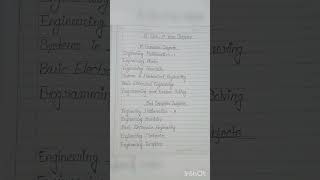 B.Tech 1st Year Subjects
1st Semester Subjects
Engineering Mathematics - I
Engineering Physics
Engineering
Systems in Mechanical Engineering
Basic Electrical Engineering
Programming and Problem Solving
2nd Semester Subjects
Engineering Mathematics - II
Engineering Chemistry
Basic Electronics Engineering
Engineering Mechanics
Engineering Graphics
Engineering
Systems in
Basic Elect
Programmin
Engineering
lving
Solving
bjects
InShOt